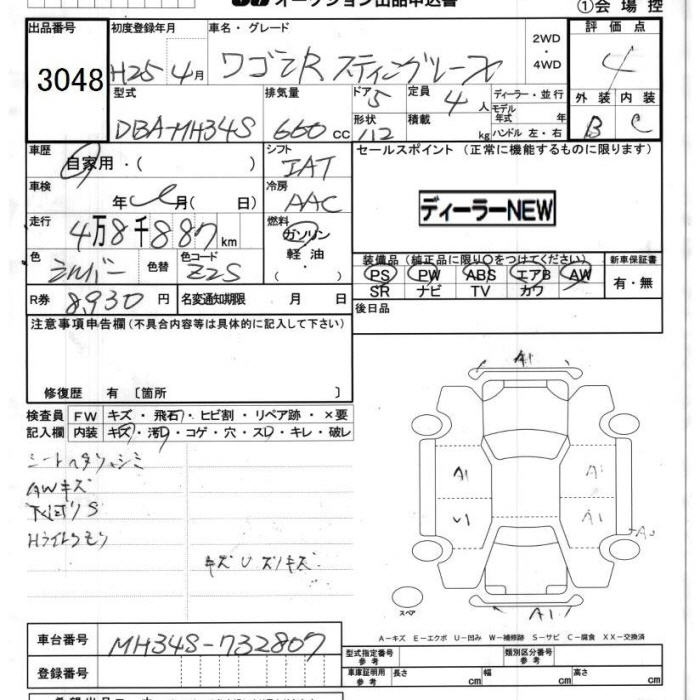 オークション出品申込書
①会場控
出品番号 初度登録年月 車名・グレード 2WD 評価点
3048 H25 4月 ワゴンR スティングレーX ・4WD 4
型式 排気量 ドア 定員 ディーラー・並行 外装 内装
DBA-MH34S 660cc 5 4人 モデル年式 年 B C
形状 積載 kg ハンドル 左・右
112
車歴 シフト セールスポイント (正常に機能するものに限ります)
自家用・( ) IAT
車検 冷房
年 月( 日) AAC ディーラーNEW
走行 燃料
4万8千887km ガソリン
軽油・
( )
色 シルバー 色替 色コード Z2S
装備品 (純正品に限り○をつけてください) 新車保証書
PS PW ABS エアB AW 有・無
SR ナビ TV カワ
R券 8,930円 名変通知期限 月 日
後日品
注意事項申告欄 (不具合内容等は具体的に記入して下さい)
修復歴 有 〔箇所 〕
検査員 FW キズ・飛石・ヒビ割・リペア跡・×要
記入欄 内装 キズ・汚・コゲ・穴・スレ・キレ・破レ
シートヘタリ、シミ
AWキズ
下回りS
Hライトクモリ
キズU
A1
A1 A1
U1 A1
A1
スペア
A-キズ E-エクボ U-凹み W-補修跡 S-サビ C-腐食 XX-交換済
車台番号 MH34S-732807
登録番号
型式指定番号 参考 類別区分番号 参考
車庫証明用 参考 長さ cm 幅 cm 高さ cm